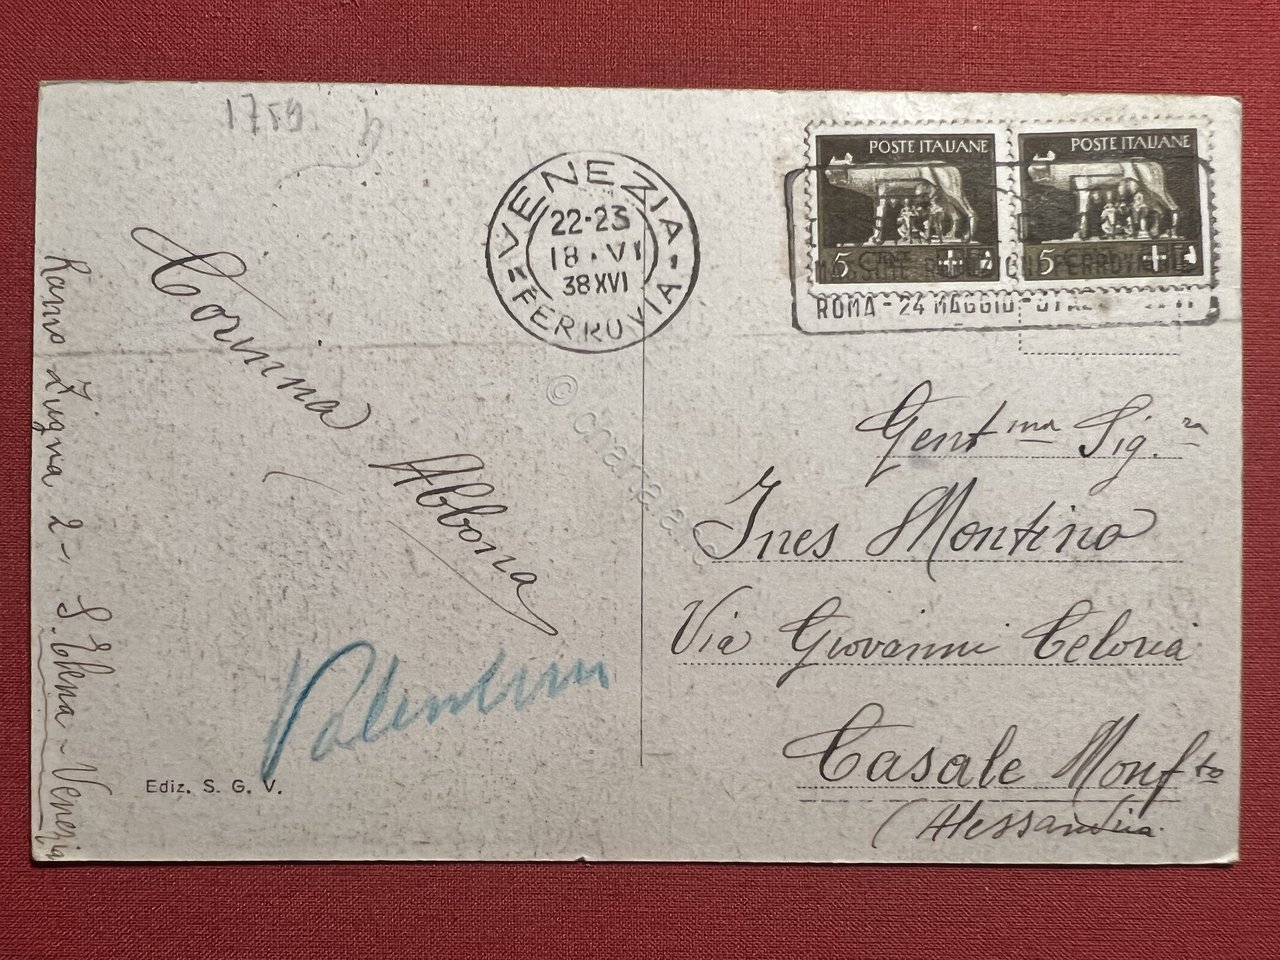 1759
VENEZIA
22-23
18·VI
38XVI
FERROVIA
POSTE ITALIANE
5 CENT
POSTE ITALIANE
5
FERROVIARIE
ROMA - 24 MAGGIO -
Corinna Abbona
Ramo Zugna 2 - S. Elena - Venezia
Gent ma Sig. ra
Ines Montino
Via Giovanni Celoria
Casale Monf to
(Alessandria
Ediz. S. G. V.